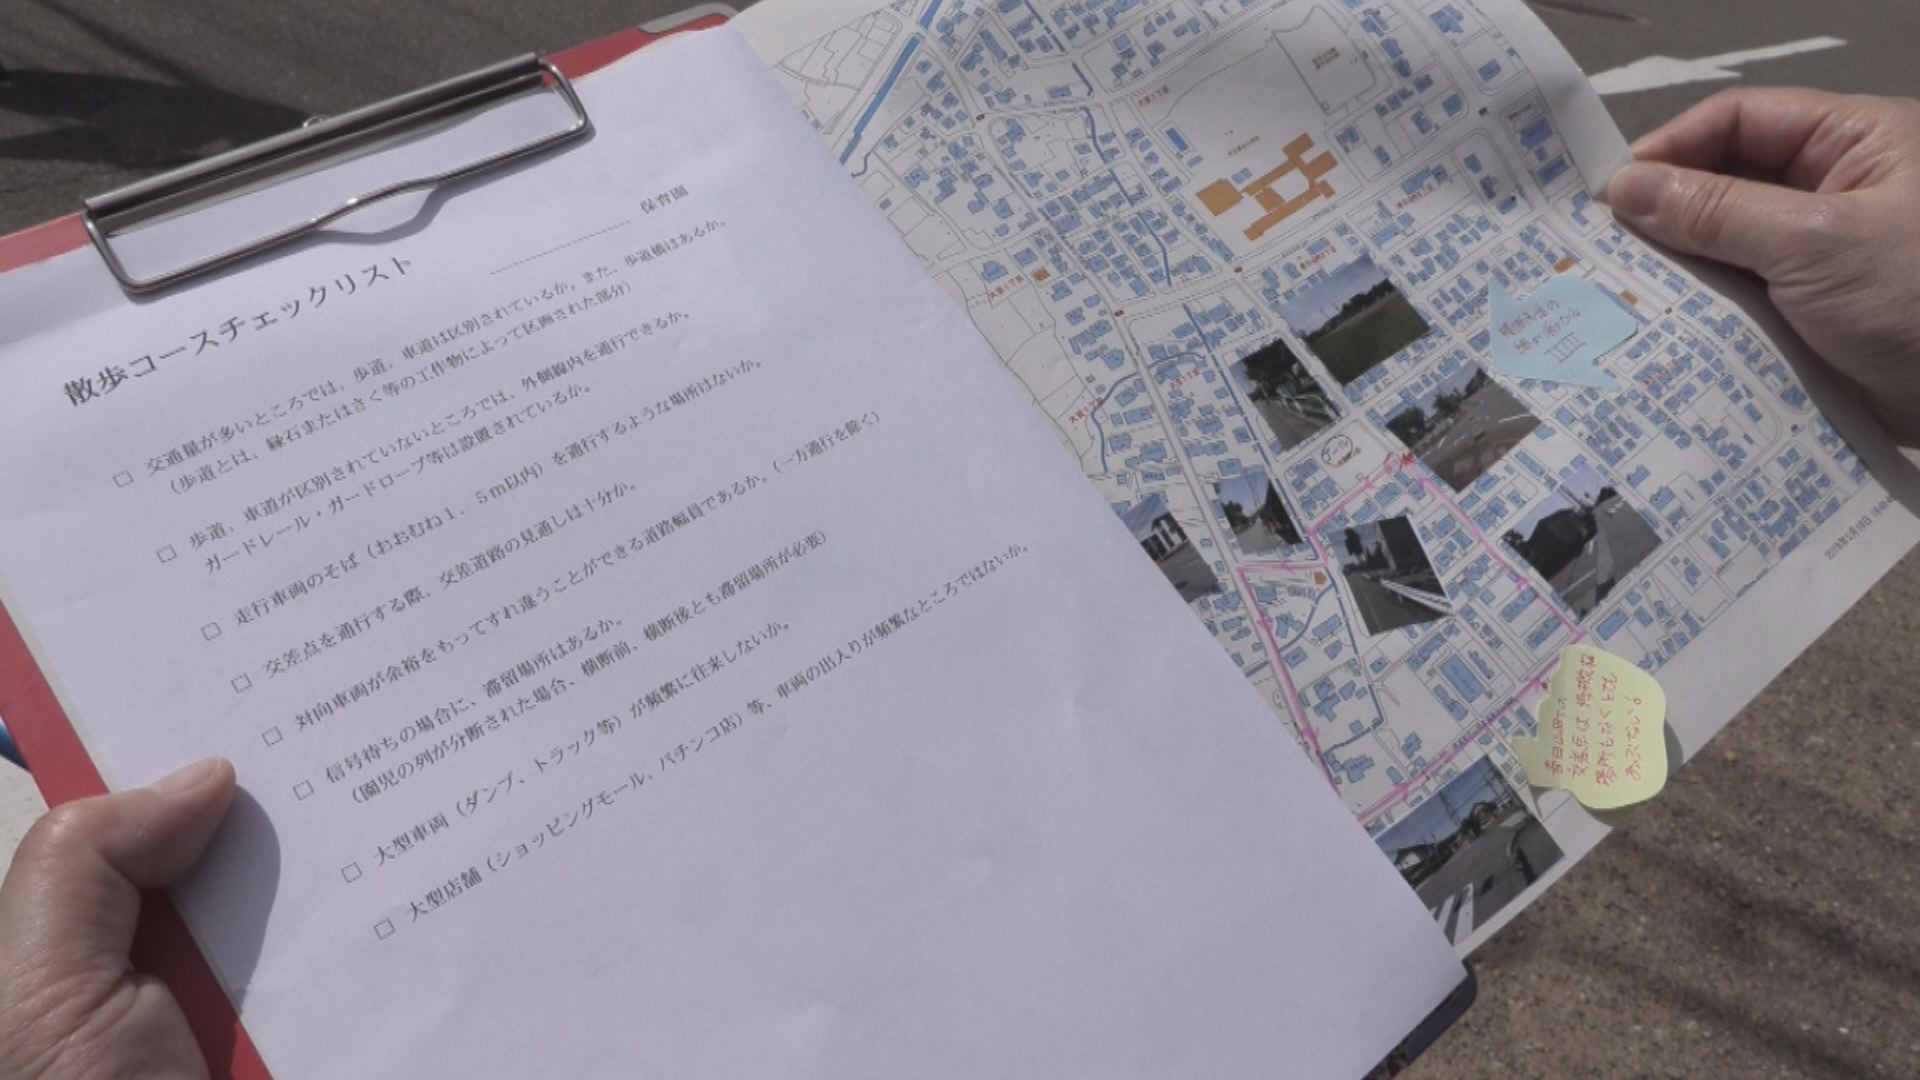 保育園
散歩コースチェックリスト
□ 交通量が多いところでは、歩道、車道は区別されているか。また、歩道橋はあるか。
(歩道とは、縁石またはさく等の工作物によって区画された部分)
□ 歩道、車道が区別されていないところでは、外側線内を通行できるか。
ガードレール・ガードロープ等は設置されているか。
□ 走行車両のそば(おおむね1.5m以内)を通行するような場所はないか。
□ 交差点を通行する際、交差道路の見通しは十分か。
□ 対向車両が余裕をもってすれ違うことができる道路幅員であるか。(一方通行を除く)
□ 信号待ちの場合に、滞留場所はあるか。
(園児の列が分断された場合、横断前、横断後とも滞留場所が必要)
□ 大型車両(ダンプ、トラック等)が頻繁に往来しないか。
□ 大型店舗(ショッピングモール、パチンコ店)等、車両の出入りが頻繁なところではないか。
横断歩道の
線が消えてる
ゴール
春日山町の
交差点は 待機
場所もなくとても
あぶない。